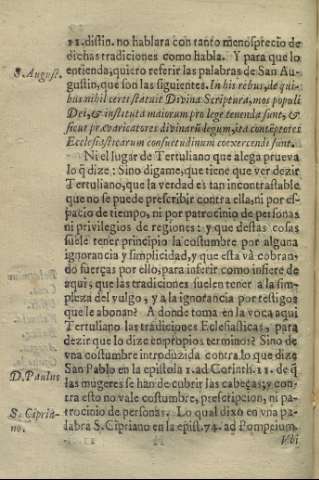 11. distin. no hablara con tanto menosprecio de
dichas tradiciones como habla. Y para que lo
S. August. entienda, quiero referir las palabras de San Au-
gustin, que son las siguientes. In his rebus, de qui-
bus nihil certi statuit Divina Scriptura, mos populi
Dei, & instituta maiorum pro lege tenenda sunt, &
sicut prævaricatores divinarũ legum, ita contẽptores
Ecclesiasticarum consuetudinum coercendi sunt.
Ni el lugar de Tertuliano que alega prueva
lo q̃ dize: Sino digame, que tiene que ver dezir
Tertuliano, que la verdad es tan incontrastable
que no se puede prescribir contra ella, ni por es-
pacio de tiempo, ni por patrocinio de personas
ni privilegios de regiones: y que destas cosas
suele tener principio la costumbre por alguna
ignorancia y simplicidad, y que esta và cobran-
do fuerças por ello, para inferir como infiere de
aqui, que las tradiciones suelen tener a la sim-
pleza del vulgo, y a la ignorancia por testigos
que le abonan? A donde toma en la voca aqui
Tertuliano las tradiciones Eclesiasticas, para
dezir que lo dize en propios terminos? Sino de
vna costumbre introduzida contra lo que dize
D. Paulus San Pablo en la epistola 1. ad Corinth. 11. de q̃
las mugeres se han de cubrir las cabeças; y con-
tra esto no vale costumbre, prescripcion, ni pa-
S. Cipria- trocinio de personas. Lo qual dixo en vna pa-
no. labra S. Cipriano en la epist. 74. ad Pompeium.
Vbi